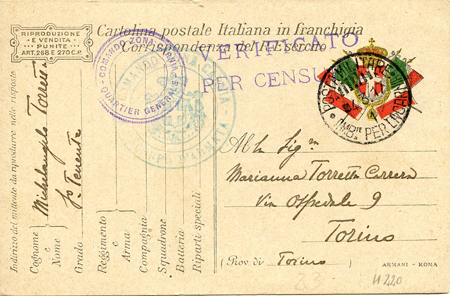 RIPRODUZIONE
E VENDITA
PUNITE
ART. 268 E 270 C.P.
Cartolina postale Italiana in franchigia
Corrispondenza del R. Esercito
VERIFICATO
PER CENSURA
COMANDO ZONA
QUARTIER GENERALE
POSTA MILITARE
PER LUGARE
Indirizzo del mittente da riprodurre nelle risposte
Cognome e Nome
Michelangelo Torretta
Grado
Reggimento e Arma
Compagnia
Squadrone
Batteria
Riparto speciali
Alla Sig.
Marianna Torretta Carrera
Via Ospedale 9
Torino
(Prov. di Torino )
ARMANI - ROMA
H220